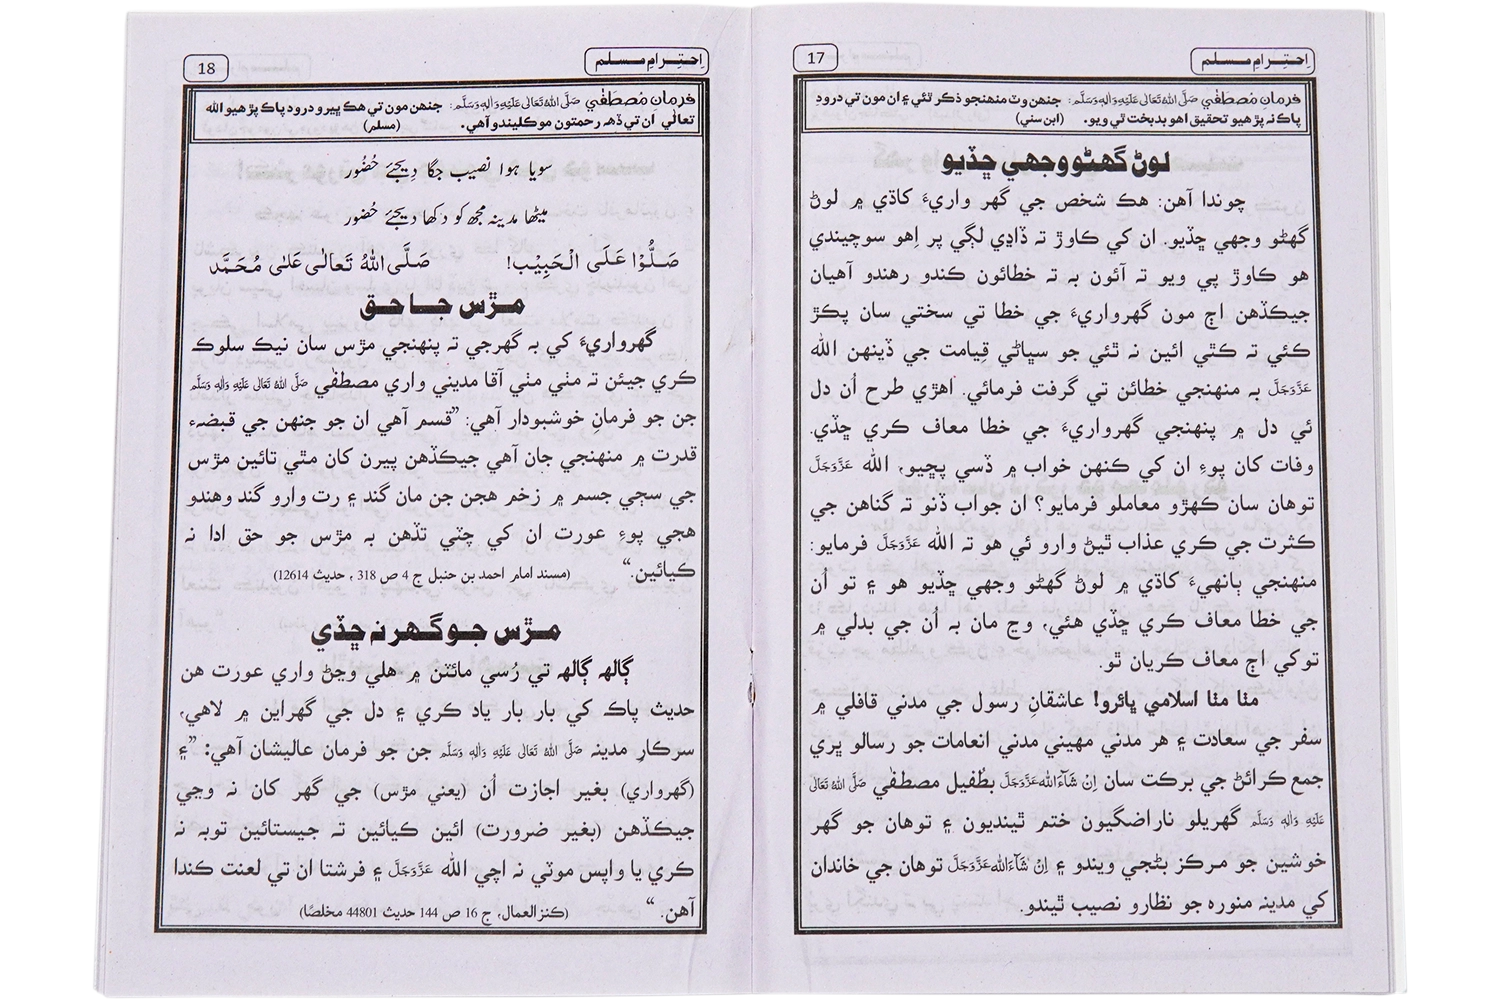 اِحـتـرامِ مـسـلـم
17
فرمانِ مُصطَفٰي صَلَّى اللهُ تَعَالٰى عَلَيْهِ وَاٰلِهٖ وَسَلَّم: جنهن وٽ منهنجو ذڪر ٿئي ۽ ان مون تي درودِ
پاڪ نہ پڙهيو تحقيق اهو بدبخت ٿي ويو. (ابن سني)
لوڻ گهڻو وجهي ڇڏيو
چوندا آهن: هڪ شخص جي گهر واريءَ کاڌي ۾ لوڻ
گهڻو وجهي ڇڏيو. ان کي ڪاوڙ تہ ڏاڍي لڳي پر اِهو سوچيندي
هو ڪاوڙ پي ويو تہ آئون بہ تہ خطائون ڪندو رهندو آهيان
جيڪڏهن اڄ مون گهرواريءَ جي خطا تي سختي سان پڪڙ
ڪئي تہ ڪٿي ائين نہ ٿئي جو سڀاڻي قِيامت جي ڏينهن الله
عَزَّوَجَلَّ بہ منهنجي خطائن تي گرفت فرمائي. اهڙي طرح اُن دل
ئي دل ۾ پنهنجي گهرواريءَ جي خطا معاف ڪري ڇڏي.
وفات کان پوءِ ان کي ڪنهن خواب ۾ ڏسي پڇيو، الله عَزَّوَجَلَّ
توهان سان ڪهڙو معاملو فرمايو؟ ان جواب ڏنو تہ گناهن جي
ڪثرت جي ڪري عذاب ٿيڻ وارو ئي هو تہ الله عَزَّوَجَلَّ فرمايو:
منهنجي ٻانهيءَ کاڌي ۾ لوڻ گهڻو وجهي ڇڏيو هو ۽ تو اُن
جي خطا معاف ڪري ڇڏي هئي، وڃ مان بہ اُن جي بدلي ۾
توکي اڄ معاف ڪريان ٿو.
مٺا مٺا اسلامي ڀائرو! عاشقانِ رسول جي مدني قافلي ۾
سفر جي سعادت ۽ هر مدني مهيني مدني انعامات جو رسالو ڀري
جمع ڪرائڻ جي برڪت سان اِنْ شَآءَ اللّٰه عَزَّوَجَلَّ بطُفيل مصطفٰي صَلَّى اللهُ تَعَالٰى
عَلَيْهِ وَاٰلِهٖ وَسَلَّم گهريلو ناراضگيون ختم ٿينديون ۽ توهان جو گهر
خوشين جو مرڪز بڻجي ويندو ۽ اِنْ شَآءَ اللّٰه عَزَّوَجَلَّ توهان جي خاندان
کي مدينہ منوره جو نظارو نصيب ٿيندو.
اِحـتـرامِ مـسـلـم
18
فرمانِ مُصطَفٰي صَلَّى اللهُ تَعَالٰى عَلَيْهِ وَاٰلِهٖ وَسَلَّم: جنهن مون تي هڪ ڀيرو درود پاڪ پڙهيو الله
تعالٰي ان تي ڏهہ رحمتون موڪليندو آهي. (مسلم)
سویا ہوا نصیب جگا دِیجئے حُضُور
میٹھا مدینہ مجھ کو دکھا دیجئے حُضُور
صَلُّوْا عَلَى الْحَبِيْب! صَلَّى اللهُ تَعَالٰى عَلٰى مُحَمَّد
مـڙس جـا حـق
گهرواريءَ کي بہ گهرجي تہ پنهنجي مڙس سان نيڪ سلوڪ
ڪري جيئن تہ مٺي مٺي آقا مديني واري مصطفٰي صَلَّى اللهُ تَعَالٰى عَلَيْهِ وَاٰلِهٖ وَسَلَّم
جن جو فرمانِ خوشبودار آهي: ”قسم آهي ان جو جنهن جي قبضہء
قدرت ۾ منهنجي جان آهي جيڪڏهن پيرن کان مٿي تائين مڙس
جي سڄي جسم ۾ زخم هجن جن مان گند ۽ رت وارو گند وهندو
هجي پوءِ عورت ان کي چٽي تڏهن بہ مڙس جو حق ادا نہ
ڪيائين.“ (مسند امام احمد بن حنبل ج 4 ص 318 ، حديث 12614)
مـڙس جـو گـهر نہ ڇڏي
ڳالهہ ڳالهہ تي رُسي مائٽن ۾ هلي وڃڻ واري عورت هن
حديث پاڪ کي بار بار ياد ڪري ۽ دل جي گهراين ۾ لاهي،
سرڪارِ مدينہ صَلَّى اللهُ تَعَالٰى عَلَيْهِ وَاٰلِهٖ وَسَلَّم جن جو فرمان عاليشان آهي: ”۽
(گهرواري) بغير اجازت اُن (يعني مڙس) جي گهر کان نہ وڃي
جيڪڏهن (بغير ضرورت) ائين ڪيائين تہ جيستائين توبہ نہ
ڪري يا واپس موٽي نہ اچي الله عَزَّوَجَلَّ ۽ فرشتا ان تي لعنت ڪندا
آهن. “ (ڪنز العمال، ج 16 ص 144 حديث 44801 مخلصًا)